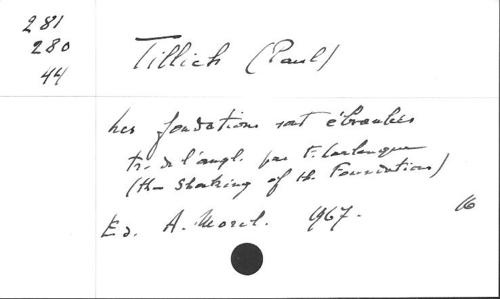 281
280
44
Tillich (Paul)
Les fondations sont ébranlées
tr. de l'angl. par F. Larlenque
(the Shaking of the Foundations)
Ed. A. Morel. 1967. 16